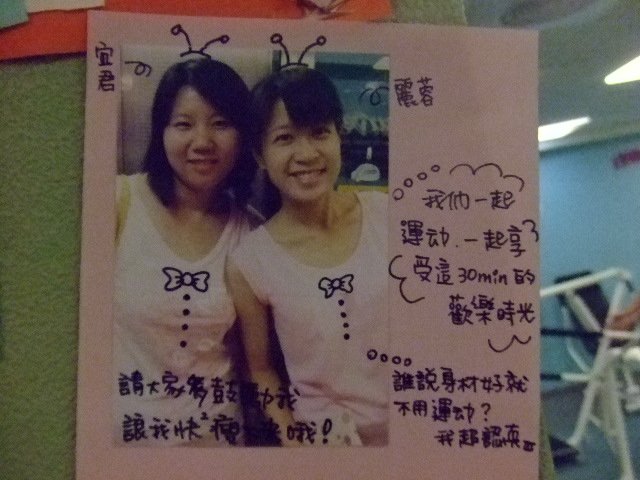 宜君
麗蓉
我们一起
運动.一起享
受這30min的
歡樂時光
請大家多鼓励我
讓我快²瘦下來哦!
誰說身材好就
不用運动?
我超認真